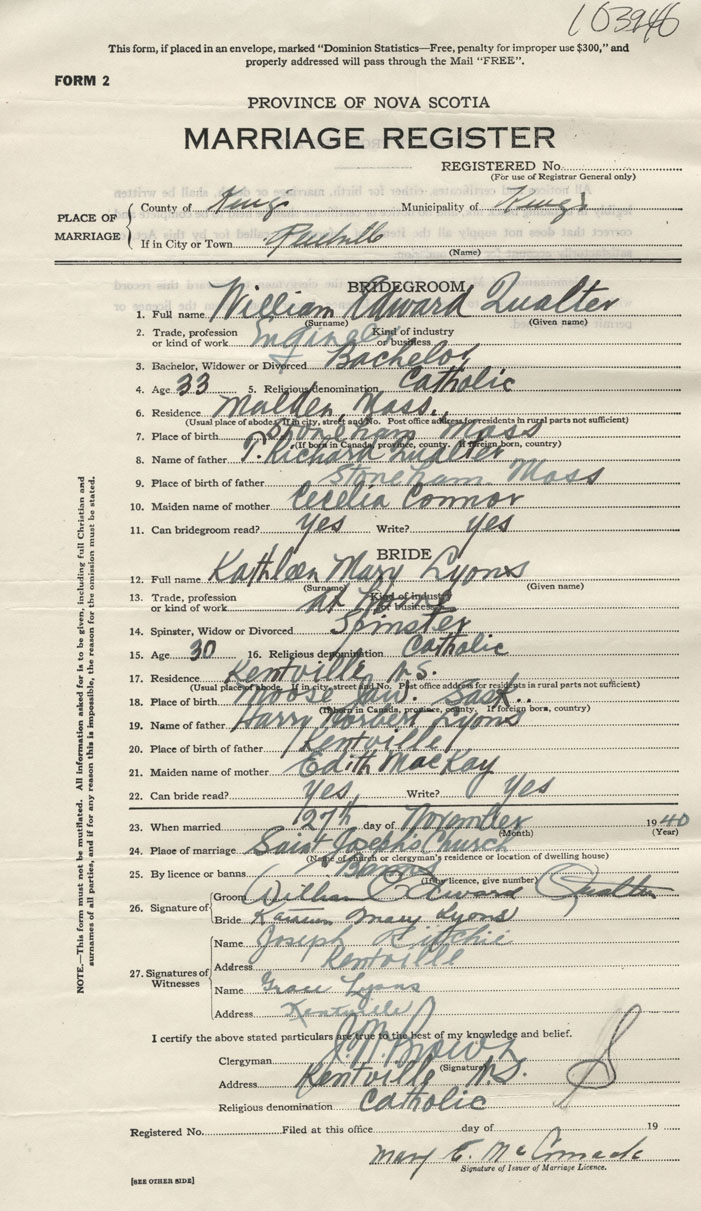 103946
This form, if placed in an envelope, marked "Dominion Statistics—Free, penalty for improper use $300," and
properly addressed will pass through the Mail "FREE".
FORM 2
PROVINCE OF NOVA SCOTIA
MARRIAGE REGISTER
REGISTERED No.
(For use of Registrar General only)
PLACE OF MARRIAGE
County of Kings Municipality of Kings
If in City or Town
(Name)
BRIDEGROOM
1. Full name William Edward Qualter
(Surname) (Given name)
2. Trade, profession or kind of work Engineer Kind of industry or business
3. Bachelor, Widower or Divorced Bachelor
4. Age 33 5. Religious denomination Catholic
6. Residence Malden, Mass.
(Usual place of abode. If in city, street and No. Post office address for residents in rural parts not sufficient)
7. Place of birth Stoneham Mass
(If born in Canada, province, county. If foreign born, country)
8. Name of father T. Richard Qualter
9. Place of birth of father Stoneham Mass
10. Maiden name of mother Cecelia Connor
11. Can bridegroom read? Yes Write? yes
BRIDE
12. Full name Kathleen Mary Lyons
(Surname) (Given name)
13. Trade, profession or kind of work at home Kind of industry or business
14. Spinster, Widow or Divorced Spinster
15. Age 30 16. Religious denomination Catholic
17. Residence Kentville N.S.
(Usual place of abode. If in city, street and No. Post office address for residents in rural parts not sufficient)
18. Place of birth Moose Jaw. Sask..
(If born in Canada, province, county. If foreign born, country)
19. Name of father Harry Norbert Lyons
20. Place of birth of father Kentville
21. Maiden name of mother Edith MacKay
22. Can bride read? Yes Write? Yes
23. When married 27th day of November 1940
(Month) (Year)
24. Place of marriage Saint Joseph's Church
(Name of church or clergyman's residence or location of dwelling house)
25. By licence or banns Banns
(If by licence, give number)
26. Signature of
Groom William Edward Qualter
Bride Kathleen Mary Lyons
27. Signatures of Witnesses
Name Joseph Ritchie
Address Kentville
Name Grace Lyons
Address Kentville
I certify the above stated particulars are true to the best of my knowledge and belief.
Clergyman J. H. Brown
(Signature)
Address Kentville N.S.
Religious denomination Catholic
Registered No. Filed at this office day of 19
Mary E. McCormack
Signature of Issuer of Marriage Licence.
[SEE OTHER SIDE]
NOTE.—This form must not be mutilated. All information asked for is to be given, including full Christian and
surnames of all parties, and if for any reason this is impossible, the reason for the omission must be stated.